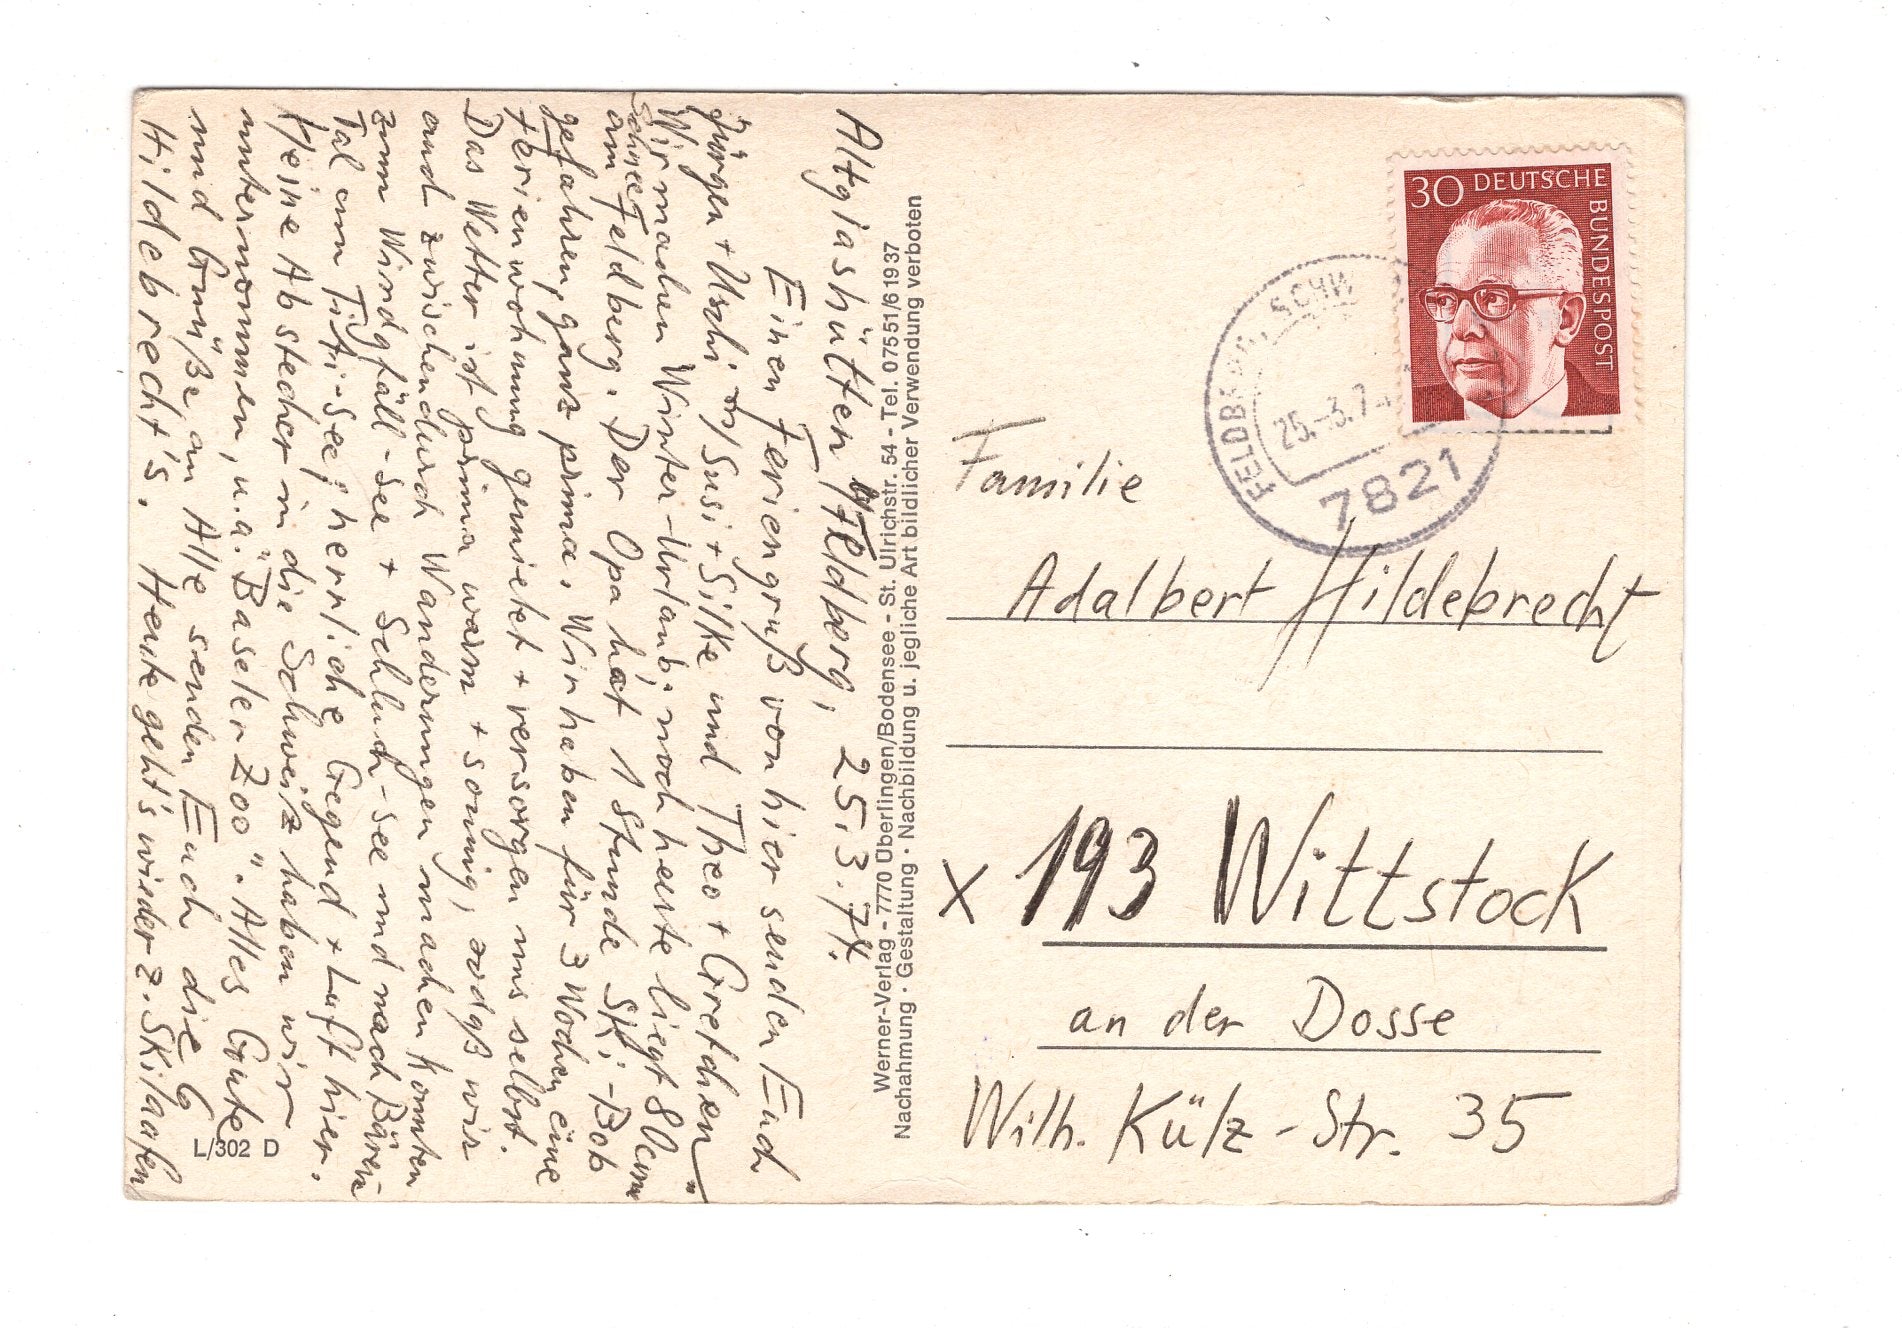 Altglashütten/Feldberg, 25.3.74.
Einen Feriengruß von hier senden Euch
Jürgen + Uschi m/Susi + Silke und Theo + Gretchen"
Wir machen Winter-Urlaub, noch heute liegt 80cm
Schnee
am Feldberg. Der Opa hat 1 Stunde Ski-Bob
gefahren, ganz prima. Wir haben für 3 Wochen eine
Ferienwohnung gemietet + versorgen uns selbst.
Das Wetter ist prima warm + sonnig, sodaß wir
auch zwischendurch Wanderungen machen konnten
zum Windgfäll-See + Schluch-see und nach Bären
Tal am Titi-See, herrliche Gegend + Luft hier.
Kleine Abstecher in die Schweiz haben wir
unternommen, u.a. "Baseler Zoo". Alles Gute
und Grüße an Alle senden Euch die 6
Hildebrecht's. Heute geht's wieder z. Skilaufen
L/302 D
Werner-Verlag - 7770 Überlingen/Bodensee - St. Ulrichstr. 54 - Tel. 07551/61937
Nachahmung · Gestaltung · Nachbildung u. jegliche Art bildlicher Verwendung verboten
30 DEUTSCHE BUNDESPOST
SCHW
25.-3.7
7821
Familie
Adalbert Hildebrecht
x 193 Wittstock
an der Dosse
Wilh. Külz-Str. 35